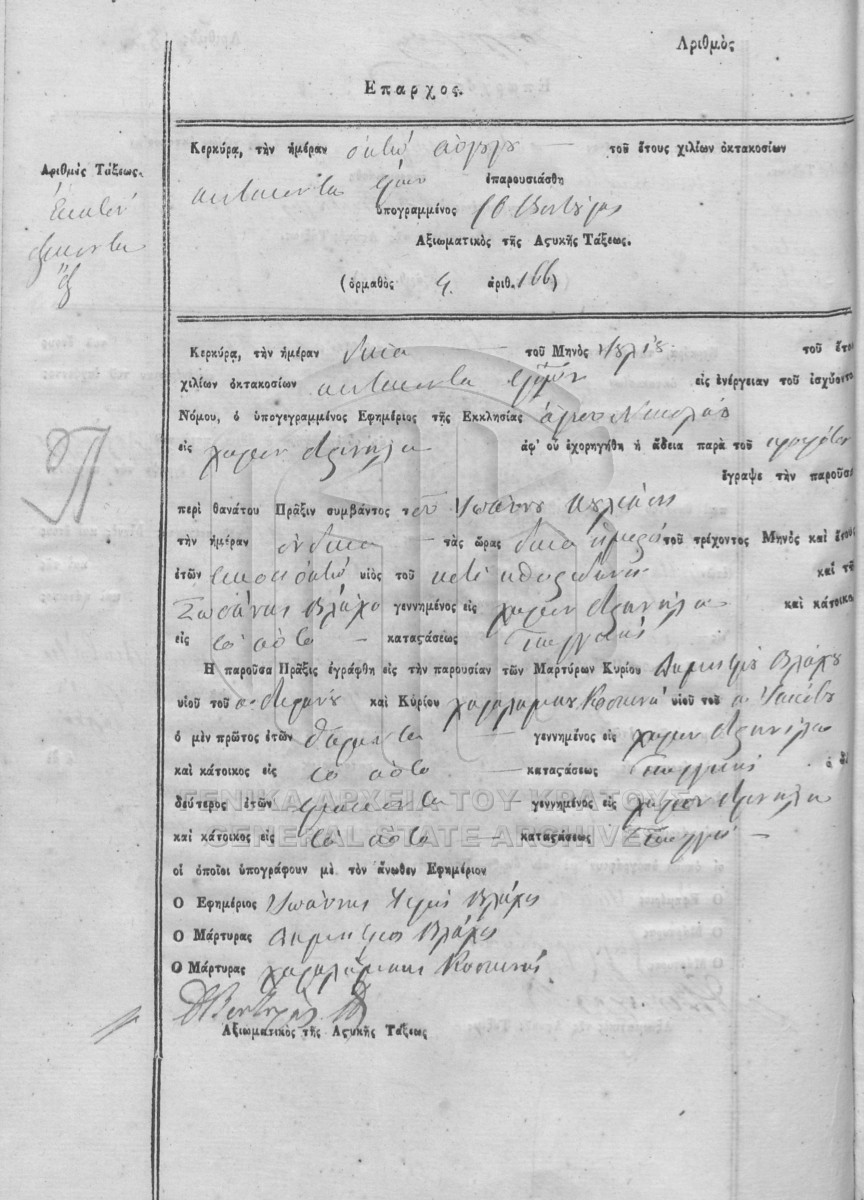 Αριθμὸς
Επαρχος.
Αριθμὸς Τάξεως.
Ἑκατόν
ἑξήκοντα
ἕξ
Κερκύρᾳ, τὴν ἡμέραν ὀκτώ αὐγούστου τοῦ ἔτους χιλίων ὀκτακοσίων
πεντήκοντα ἐπαρουσιάσθη
ὑπογραμμένος
Αξιωματικὸς τῆς Αςυκῆς Τάξεως.
(ὁρμαθὸς 4. ἀριθ. 166)
Κερκύρᾳ, τὴν ἡμέραν δέκα τοῦ Μηνὸς Ἰουλίου τοῦ ἔτου
χιλίων ὀκτακοσίων πεντήκοντα εἰς ἐνέργειαν τοῦ ἰσχύοντο
Νόμου, ὁ ὑπογεγραμμένος Εφημέριος τῆς Εκκλησίας ἁγίου Νικολάου
εἰς χωρίον ἀφ' οὗ ἐχορηγήθη ἡ ἄδεια παρὰ τοῦ
ἔγραψε τὴν παροῦσα
περὶ θανάτου Πρᾶξιν συμβάντος τοῦ Ἰωάννου
τὴν ἡμέραν ἕνδεκα τὰς ὥρας δέκα τοῦ τρέχοντος Μηνὸς καὶ ἔτους
ἐτῶν εἴκοσι ὀκτώ υἱὸς τοῦ ποτέ καὶ τῆ
Σωσάνας Βλάχου γεννημένος εἰς χωρίον καὶ κάτοικο
εἰς τό αὐτό καταςάσεως Γεωργικῆς
Ἡ παροῦσα Πρᾶξις ἐγράφθη εἰς τὴν παρουσίαν τῶν Μαρτύρων Κυρίου Δημητρίου Βλάχου
υἱοῦ τοῦ π. Στεφάνου καὶ Κύριου Χαραλάμπου Κοσκινᾶ υἱοῦ τοῦ π. Ἰακώβου
ὁ μὲν πρῶτος ἐτῶν σαράντα γεννημένος εἰς χωρίον
καὶ κάτοικος εἰς τό αὐτό καταςάσεως Γεωργικῆς ὁ δὲ
δεύτερος ἐτῶν τριάκοντα γεννημένος εἰς χωρίον
καὶ κάτοικος εἰς τό αὐτό καταςάσεως Γεωργικῆς
οἱ ὁποῖοι ὑπογράφουν μὲ τὸν ἄνωθεν Εφημέριον
Ο Εφημέριος Ἰωάννης Ἱερεύς Βλάχος
Ο Μάρτυρας Δημήτριος Βλάχος
Ο Μάρτυρας Χαραλάμπης Κοσκινᾶς
Αξιωματικὸς τῆς Αςυκῆς Τάξεως
ΓΕΝΙΚΑ ΑΡΧΕΙΑ ΤΟΥ ΚΡΑΤΟΥΣ
GENERAL STATE ARCHIVES